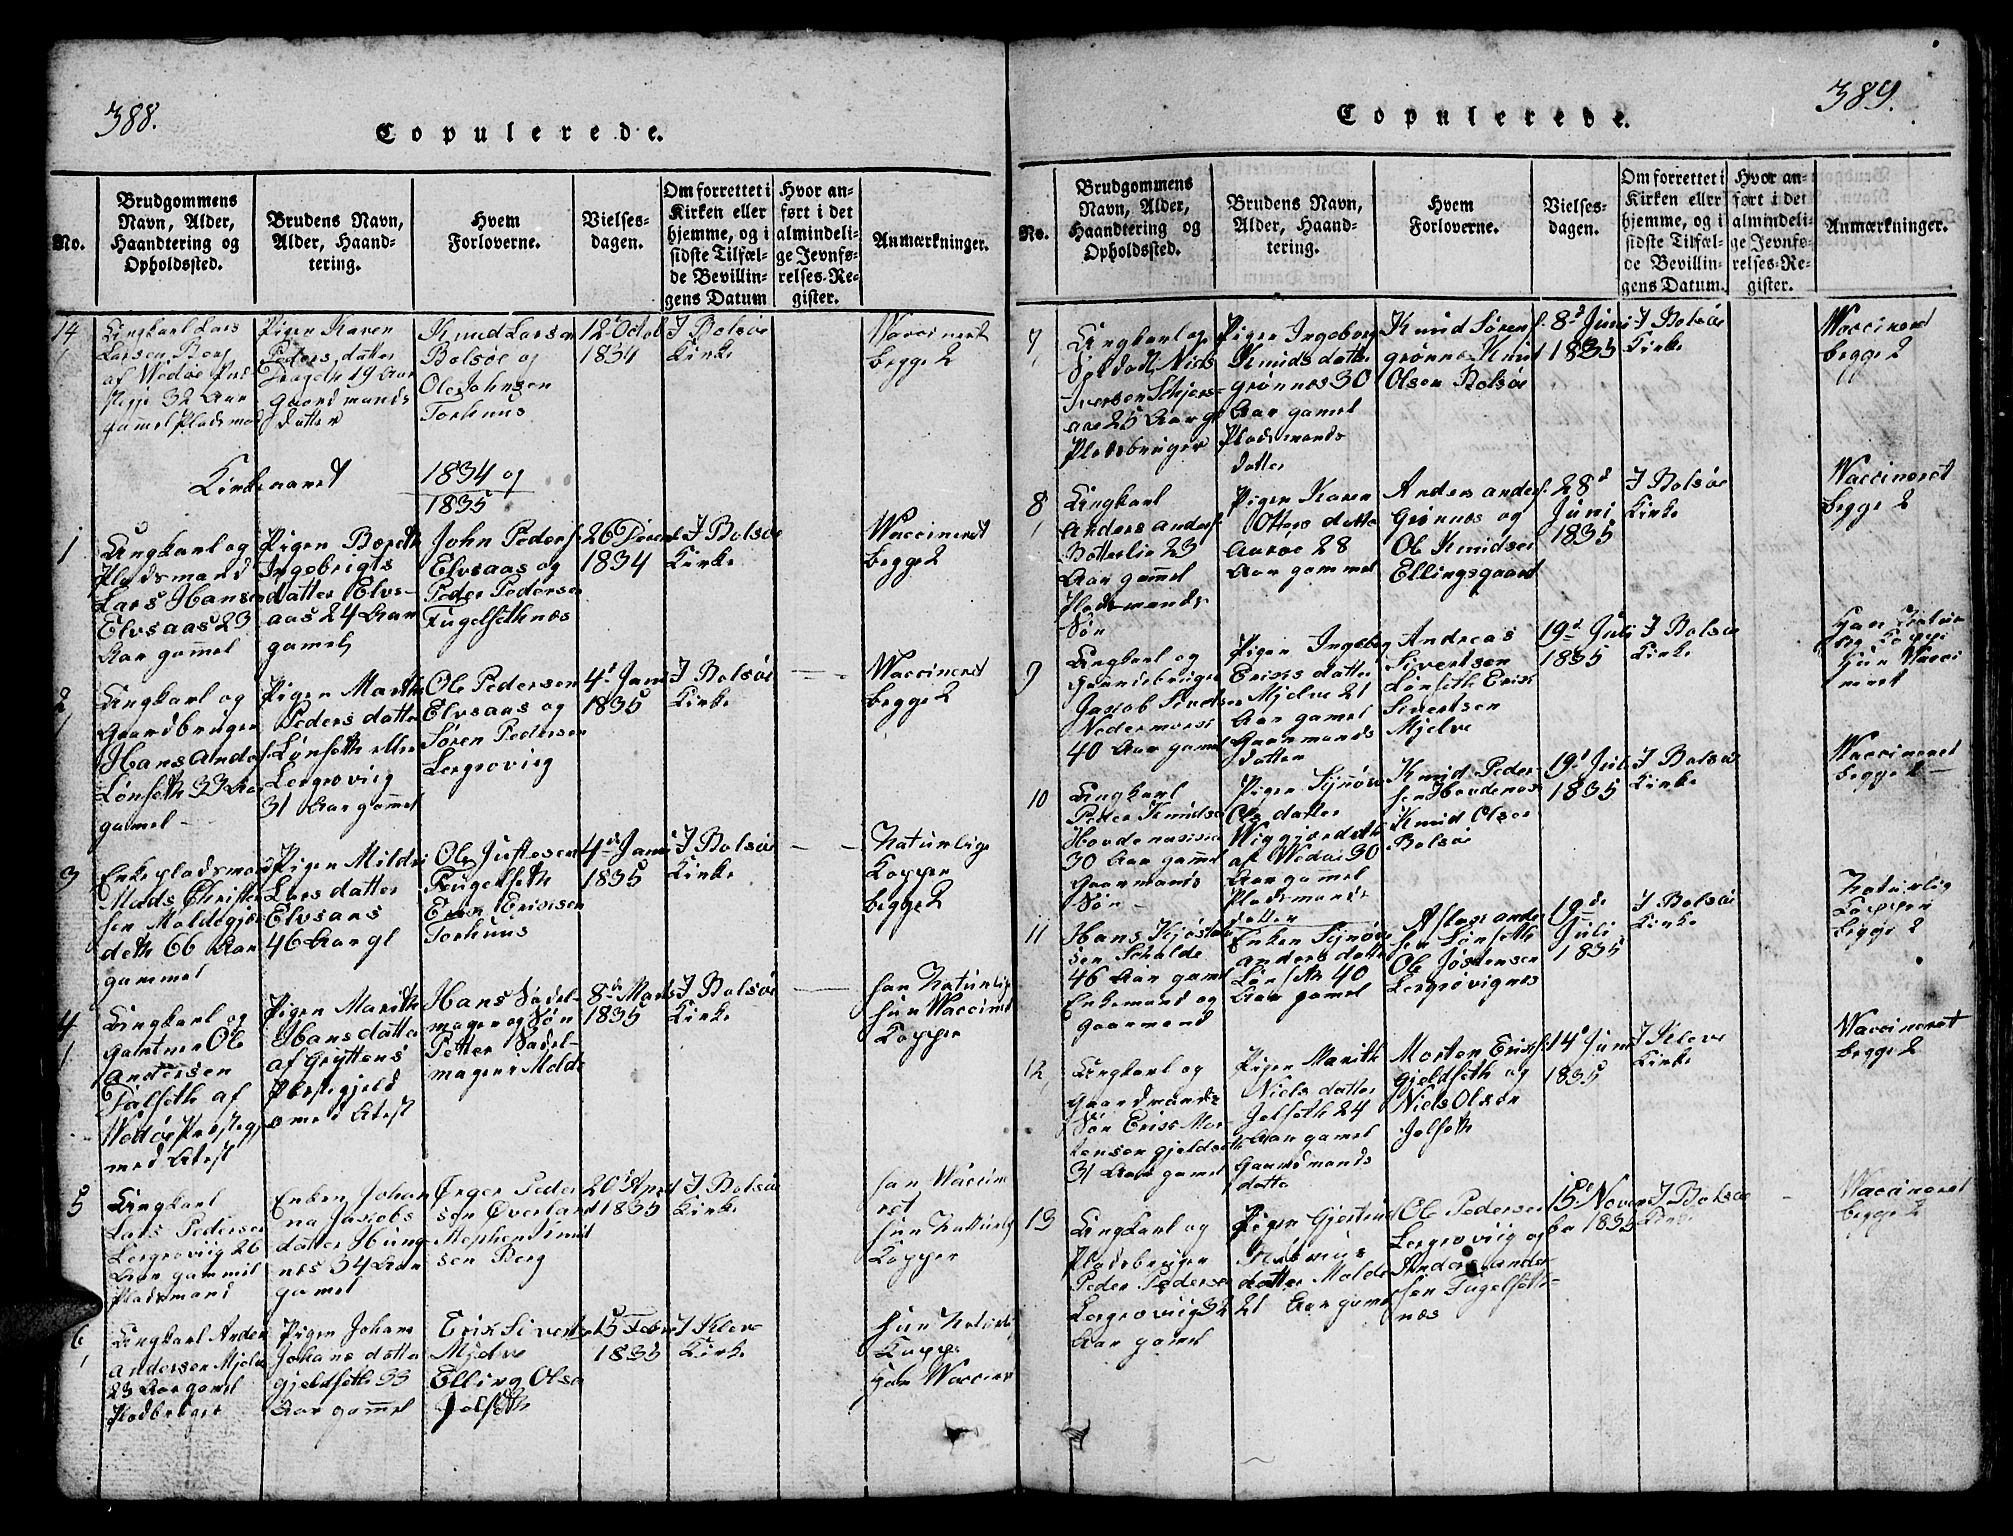 388.
Copulerede.
No.
Brudgommens
Navn, Alder,
Haandtering og
Opholdssted.
Brudens Navn,
Alder, Haand-
tering.
Hvem
Forloverne.
Vielses-
dagen.
Om forrettet i
Kirken eller
hjemme, og i
sidste Tilfæl-
de Bevillin-
gens Datum
Hvor an-
ført i det
almindeli-
ge Jevnfø-
relses-Re-
gister.
Anmærkninger.
14
Ungkarl Lars
Larsen Berg
af Wedøe
32 Aar
gamel Pladsmand
Pigen Karen
Peders datter
19 Aar
Gaardmands
datter
Knud Larsen
Bolsøe og
Ole Johnsen
Torhuus
12 Octob
1834
I Bolsøe
Kirke
Vaccineret
begge 2
Kirkeaaret
1834 og
1835
1
Ungkarl og
Pladsmand
Lars Hansen
Elvsaas 23
Aar gammel
Pigen Bereth
Ingebrigts
datter Elvs-
aas 24 Aar
gamel
John Peders
Elvsaas og
Peder Pedersen
Fugelsethnæs
26 Decemb
1834
I Bolsøe
Kirke
Vaccineret
begge 2
2
Ungkarl og
Gaardbruger
Hans Anders
Lønseth 33 Aar
gamel
Pigen Marith
Peders datter
Lønseth eller
Lergrovviig
31 Aar gammel
Ole Pedersen
Elvsaas og
Søren Pedersen
Lergroviig
4d Janu
1835
I Bolsøe
Kirke
Vaccineret
begge 2
3
Enke pladsmand
Mads Christen
sen Moldegjær
deth 66 Aar
gammel
Pigen Mildri
Lars datter
Elvsaas
46 Aar gl
Ole Justesen
Fugelseth
Erik Eriksen
Torhuus
4de Janu
1835
I Bolsøe
Kirke
Naturlige
Kopper
begge 2
4
Ungkarl og
gartner Ole
Andersen
Talseth af
Wedøe Præsteg
med Atest
Pigen Marith
Hans datter
af Gryttens
Præstegjeld
med Atest
Hans Sadel-
mager og Søn
Petter Sadel-
mager Molde
8de Marts
1835
I Bolsøe
Kirke
han Naturlig
hun Vaccinert
Kopper
5
Ungkarl
Lars Pedersen
Lergrovviig 26
Aar gammel
Pladsmand
Enken Johan
na Jacobs
datter Hung
nes 54 Aar
gamel
Ørger Peder
sen Øverland
Stephen
sen Berg
20d April
1835
I Bolsøe
Kirke
han Vaccine
ret
hun Naturlig
Kopper
6
Ungkarl Anders
Andersen Mjelve
23 Aar gamel
Pladbruger
Pigen Johane
Johans datter
Gjeldseth 33
Aar gammel
Erik Siverts
Mjelve
Elling Olsen
Jalseth
15 Febr
1835
I Kleve
Kirke
hun Naturlig
Kopper
Han Vacciner
389.
Copulerede.
No.
Brudgommens
Navn, Alder,
Haandtering og
Opholdssted.
Brudens Navn,
Alder, Haand-
tering.
Hvem
Forloverne.
Vielses-
dagen.
Om forrettet i
Kirken eller
hjemme, og i
sidste Tilfæl-
de Bevillin-
gens Datum.
Hvor an-
ført i det
almindeli-
ge Jevnfø-
relses-Re-
gister.
Anmærkninger.
7
Ungkarl og
Soldadt Niels
Iversen Schjers-
aae 25 Aar gl
Pladsbruger
Pigen Ingeborg
Knuds datter
Grønnes 30
Aar gamel
Pladsmands
datter
Knud Sørens
grønnes Knut
Olsen Bolsøe
8d Juni
1835
I Bolsøe
Kirke
Vaccineret
begge 2
8
Ungkarl
Anders anders
Botterlie 23
Aar gammel
Pladsmands
Søn
Pigen Karen
Otters datter
Aarøe 28
Aar gammel
Anders anders
Grønnæs og
Ole Knudsen
Ellingsgaard
28d
Juni
1835
I Bolsøe
Kirke
Vaccineret
begge 2
9
Ungkarl og
Gaardbruger
Jacob Sivertsen
Nedermork
40 Aar gamel
Pigen Ingeborg
Eriks datter
Mjelve 21
Aar gamel
Gaarmands
datter
Andreas
Sivertsen
Lønseth Erik
Sivertsen
Mjelve
19d Juli
1835
I Bolsøe
Kirke
Han Natur
lig Koppe
Hun Vacci
neret
10
Ungkarl
Peder Knudsen
Hovdenakken
30 Aar gammel
Gaarmands
Søn
Pigen Synøve
Ole datter
af Wedøe 30
Aar gammel
Pladsmands
datter
Knud Peder-
sen Hovdenak
Knud Olsen
Bolsøe
19d Juli
1835
I Bolsøe
Kirke
Vaccineret
begge 2
11
Hans Kjøstel
sen Schalde
46 Aar gamel
Enkemand og
Gaarmand
Enken Synøve
anders datter
Lønseth 40
Aar gamel
Aslak ander
sen Lønseth
Ole Jostensen
Lergrovignes
19de
Juli
1835
I Bolsøe
Kirke
Naturlig
Kopper
begge 2
12
Ungkarl og
Gaardmands
Søn Erik Mor-
tensen gjeldseth
31 Aar gamel
Pigen Marith
Niels datter
Jalseth 24
Aar gamel
Gaardmands
datter
Morten Eriks
Gjeldseth og
Niels Olsen
Jalseth
14d Juni
1835
I Kleve
Kirke
Vaccineret
begge 2
13
Ungkarl og
Pladsbruger
Peder Pedersen
Lergrovviig 32
Aar gamel
Pigen Gjertrud
Rasmus
datter Molde
21 Aar gamel
Ole Pedersen
Lergrovviig og
Anders ander
sen Fugelseth-
næs
15de Novem
ber 1835
I Bolsøe
Kirke
Vaccineret
begge 2